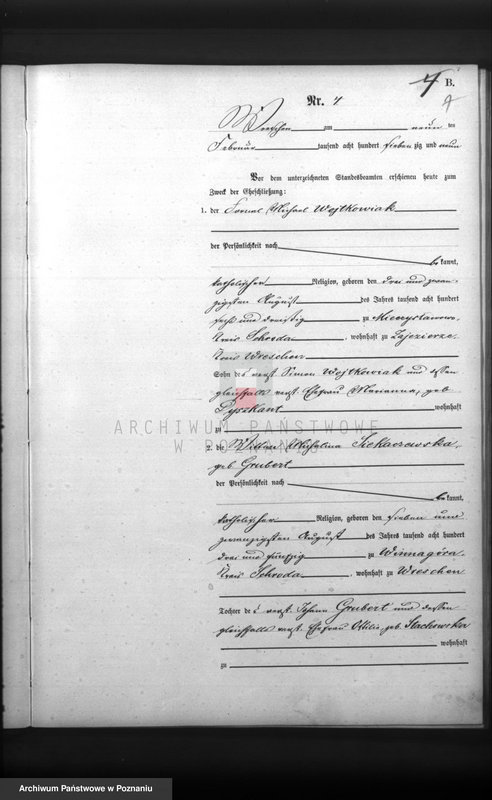 4 B.
Nr. 4
Wreschen am neun ten
Februar tausend acht hundert sieben zig und neun
Vor dem unterzeichneten Standesbeamten erschienen heute zum
Zweck der Eheschließung:
1. der Fornal Michael Wojtkowiak
der Persönlichkeit nach
be kannt,
katholischer Religion, geboren den drei und zwan-
zigsten August des Jahres tausend acht hundert
sechs und dreißig zu Mieczyslawowo,
Kreis Schroda, wohnhaft zu Zajezierze,
Kreis Wreschen
Sohn des verst. Simon Wojtkowiak und dessen
gleichfalls verst. Ehefrau Marianna, geb.
Dyszkant wohnhaft
zu
ARCHIWUM PAŃSTWOWE
W POZNANIU
2. die Wittwe Michalina Siekaczewska,
geb Grubert
der Persönlichkeit nach
be kannt,
katholischer Religion, geboren den sieben und
zwanzigsten August des Jahres tausend acht hundert
drei und fünfzig zu Winnagóra,
Kreis Schroda, wohnhaft zu Wreschen
Tochter des verst. Johann Grubert und dessen
gleichfalls verst. Ehefrau Ottilie, geb. Stachowska
wohnhaft
zu
Archiwum Państwowe w Poznaniu